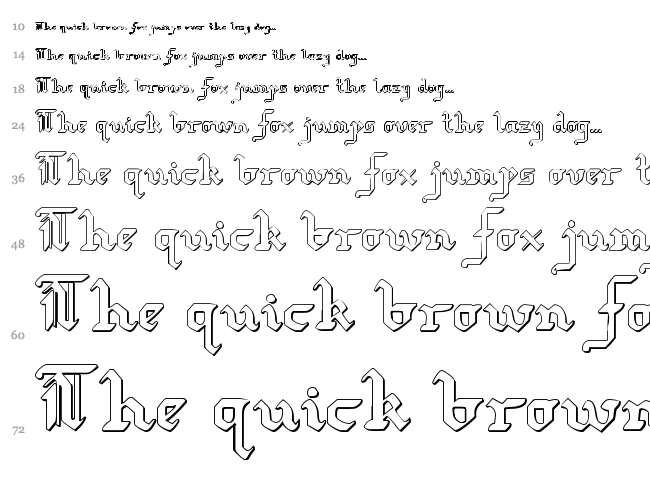 10 The quick brown fox jumps over the lazy dog...
14 The quick brown fox jumps over the lazy dog...
18 The quick brown fox jumps over the lazy dog...
24 The quick brown fox jumps over the lazy dog...
36 The quick brown fox jumps over t
48 The quick brown fox jum
60 The quick brown fo
72 The quick brown